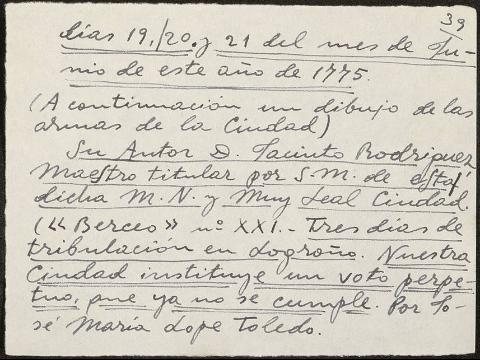 39
días 19, 20, y 21 del mes de Ju-
nio de este año de 1775.
(A continuación un dibujo de las
armas de la Ciudad)
Su Autor D. Jacinto Rodriguez
Maestro titular por S.M. de esta
dicha M.N. y Muy Leal Ciudad.
(«Berceo» nº XXI.- Tres días de
tribulación en Logroño. Nuestra
Ciudad instituye un voto perpe-
tuo, que ya no se cumple. Por Jo-
sé María Lope Toledo.